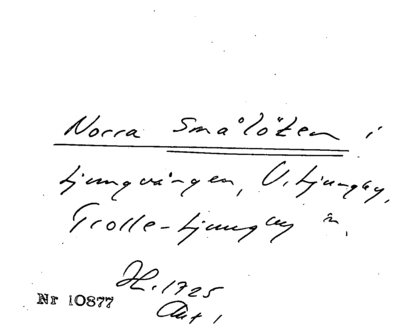 Norra Smålöten i
Ljungvången, V. Ljungby,
Trolle-Ljungby
H. 1725
Akt 1
Nr 10877